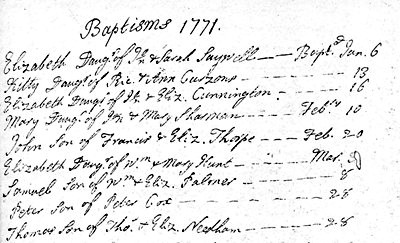 Baptisms 1771.
Elizabeth Daugr. of Jn & Sarah Saywell — — Baptd. Jan. 6
Kitty Daugr. of Ric. & Ann Curzons — — — 13
Elizabeth Daugr. of Jn & Eliz. Cunnington. — — 16
Mary Daugr. of Jn & Mary Sharman — — Febry 10
John Son of Francis & Eliz. Thorpe — — Feb. 20
Elizabeth Daugr. of Wm & Mary Hunt — — — Mar.
Samuel Son of Wm & Eliz. Palmer — — — 8
Peter Son of Peter Cox — — — — — 28
Thomas Son of Tho. & Eliz. Needham — — — 28